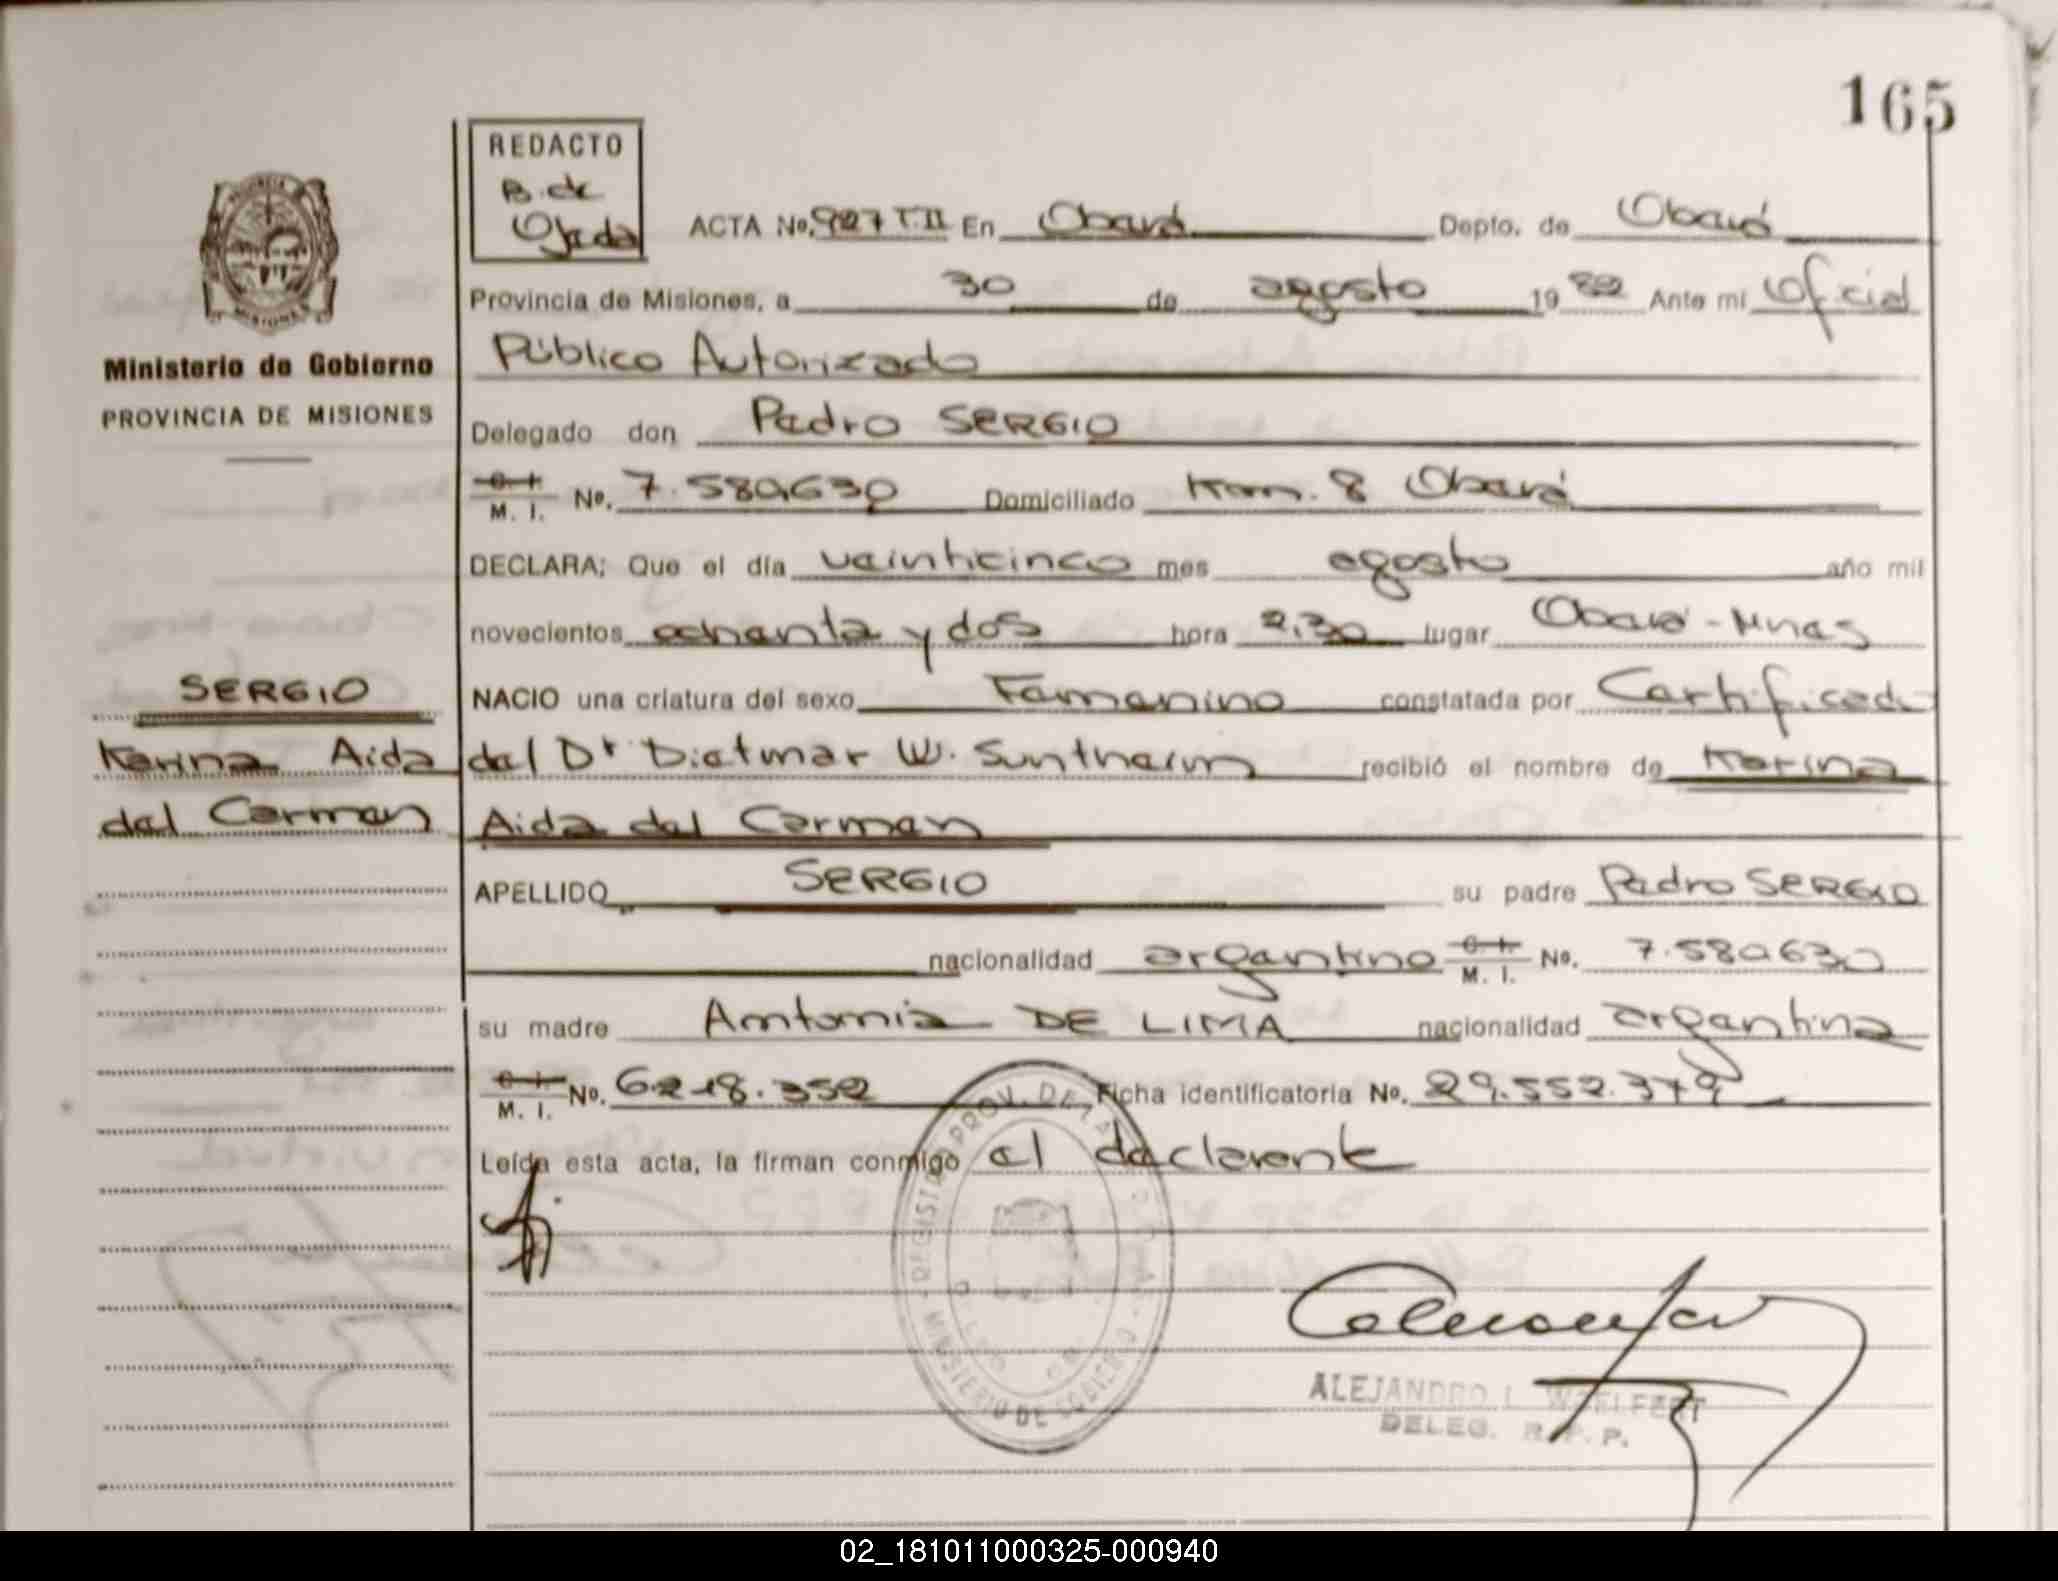 165
REDACTO
B. de
Ojeda
ACTA No. 927 T.II En Oberá Depto. de Oberá
Provincia de Misiones, a 30 de agosto 1982 Ante mi Oficial
Público Autorizado
Ministerio de Gobierno
PROVINCIA DE MISIONES
Delegado don Pedro SERGIO
C. I. M. I. No. 7.580.630 Domiciliado Km. 8 Oberá
DECLARA: Que el día veinticinco mes agosto año mil
novecientos ochenta y dos hora 2,30 lugar Oberá - Mnes
SERGIO
Karina Aida
del Carmen
NACIO una criatura del sexo Femenino constatada por Certificado
del Dr Dietmar W. Suntheim recibió el nombre de Karina
Aida del Carmen
APELLIDO SERGIO su padre Pedro SERGIO
nacionalidad argentino C. I. M. I. No. 7.580.630
su madre Antonia DE LIMA nacionalidad argentina
C. I. M. I. No. 6.218.352 Ficha identificatoria No. 29.552.379
Leída esta acta, la firman conmigo el declarante
REGISTRO PROV. DE LAS
MINISTERIO DE GOBIERNO
ALEJANDRO L. WOELFERT
DELEG. R. P. P.
02_181011000325-000940